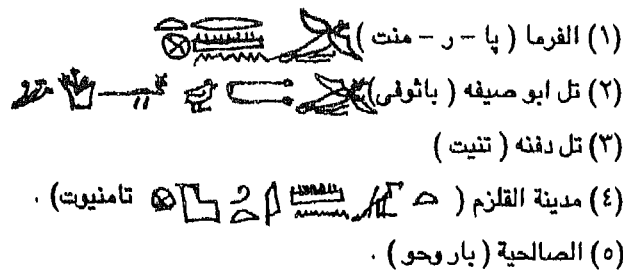 (١) الفرما ( پا - ر - منت )
(٢) تل ابو صيفه ( باثوفى)
(٣) تل دفنه ( تنيت )
(٤) مدينة القلزم ( تامنيوت) .
(٥) الصالحية ( بار وحو ) .